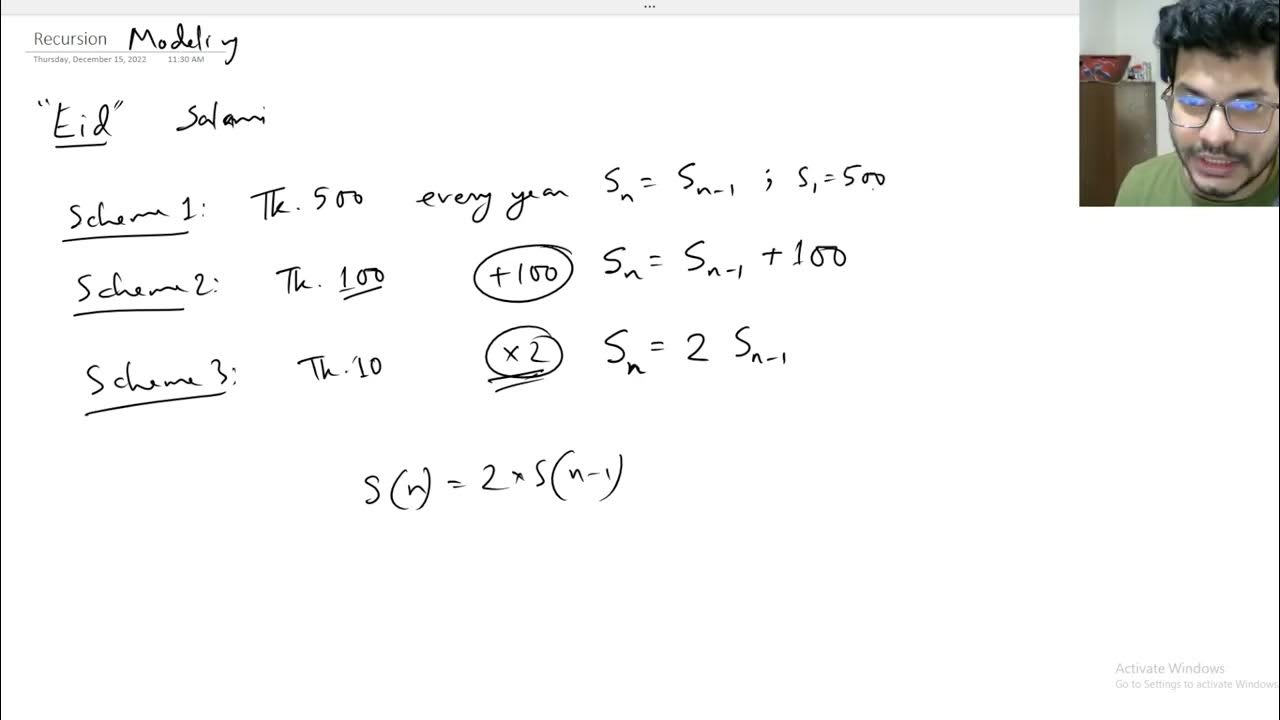 ...
Recursion Modeling
Thursday, December 15, 2022 11:30 AM
"Eid" Salami
Scheme 1: Tk. 500 every year Sₙ = Sₙ₋₁ ; S₁ = 500
Scheme 2: Tk. 100 +100 Sₙ = Sₙ₋₁ + 100
Scheme 3: Tk. 10 ×2 Sₙ = 2 Sₙ₋₁
S(n) = 2 × S(n-1)
Activate Windows
Go to Settings to activate Windows